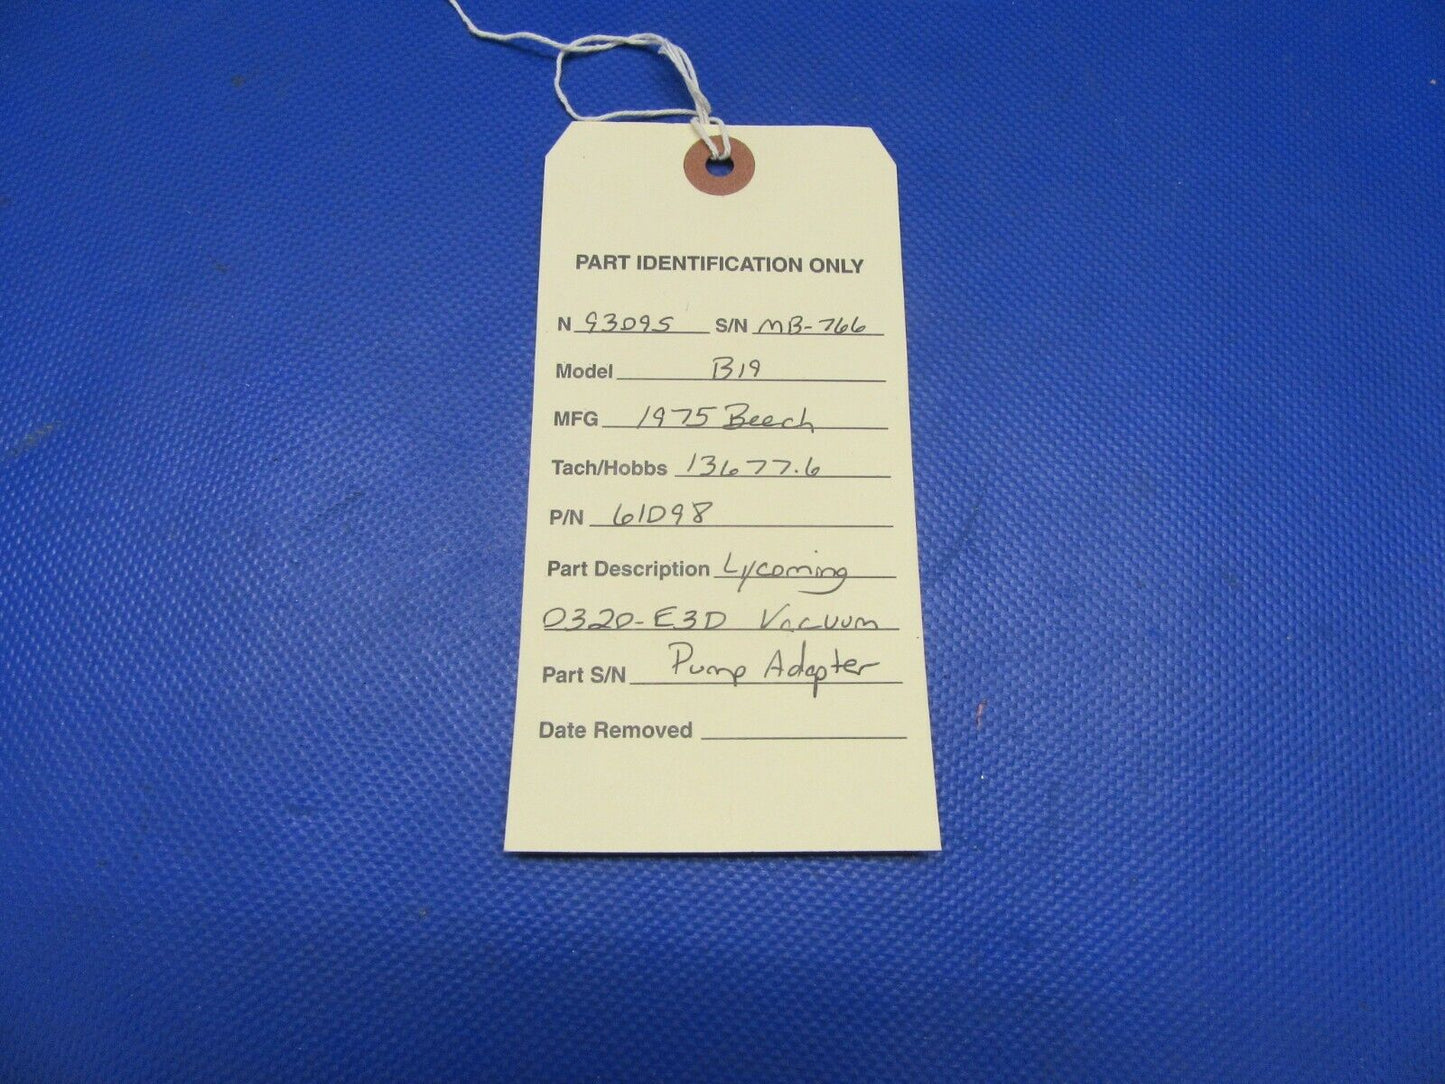 PART IDENTIFICATION ONLY
N 9309S S/N MB-766
Model B19
MFG 1975 Beech
Tach/Hobbs 13677.6
P/N 61D98
Part Description Lycoming
O320-E3D Vacuum
Part S/N Pump Adapter
Date Removed